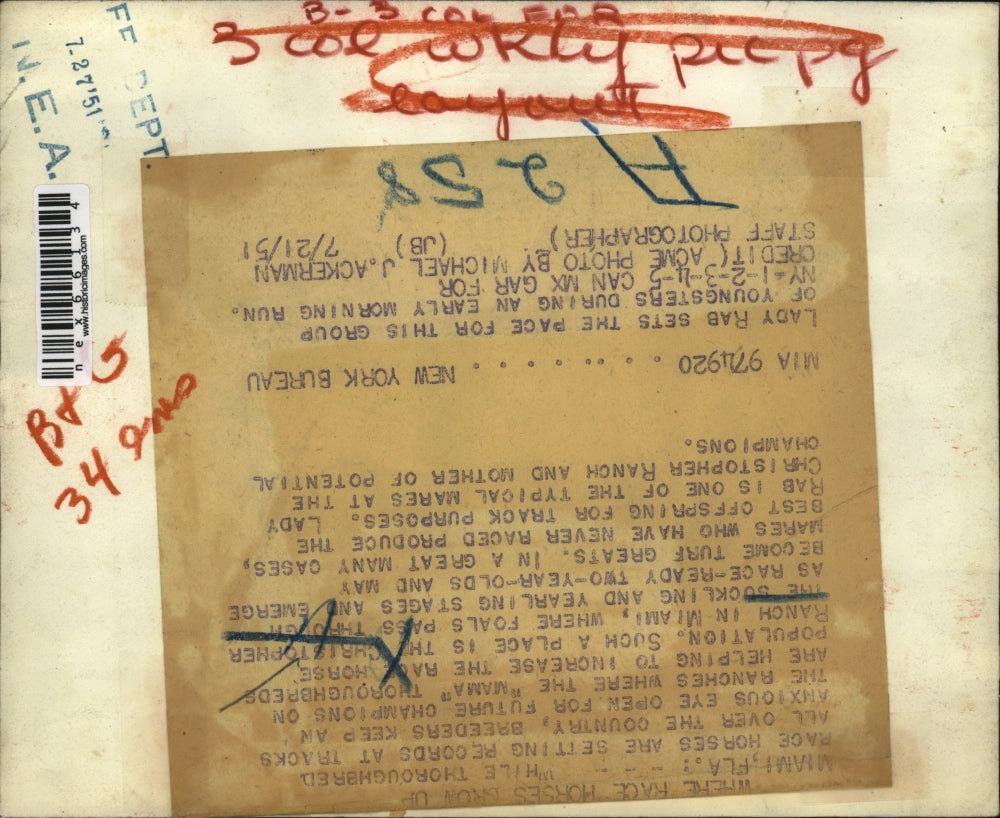 B-3 COL FOR
3 col wkly pic pg
layout
FF DEPT
7-27'51
N.E.A.
nex66134
www.historicimages.com
B+G
34
WHERE RACE HORSES GROW UP
MIAMI, FLA.: - - - WHILE THOROUGHBRED
RACE HORSES ARE SETTING RECORDS AT TRACKS
ALL OVER THE COUNTRY, BREEDERS KEEP AN
ANXIOUS EYE OPEN FOR FUTURE CHAMPIONS ON
THE RANCHES WHERE THE "MAMA" THOROUGHBREDS
ARE HELPING TO INCREASE THE RACE HORSE
POPULATION. SUCH A PLACE IS THE CHRISTOPHER
RANCH IN MIAMI, WHERE FOALS PASS THROUGH
THE SUCKLING AND YEARLING STAGES AND EMERGE
AS RACE-READY TWO-YEAR-OLDS AND MAY
BECOME TURF GREATS. IN A GREAT MANY CASES,
MARES WHO HAVE NEVER RACED PRODUCE THE
BEST OFFSPRING FOR TRACK PURPOSES. LADY
RAB IS ONE OF THE TYPICAL MARES AT THE
CHRISTOPHER RANCH AND MOTHER OF POTENTIAL
CHAMPIONS.
MIA 974920 . . . . . . . . NEW YORK BUREAU
LADY RAB SETS THE PACE FOR THIS GROUP
OF YOUNGSTERS DURING AN EARLY MORNING RUN.
NY-1-2-3-4-5 CAN MX GAR FOR
CREDIT (ACME PHOTO BY MICHAEL J. ACKERMAN
STAFF PHOTOGRAPHER) (JB) 7/21/51
A 258